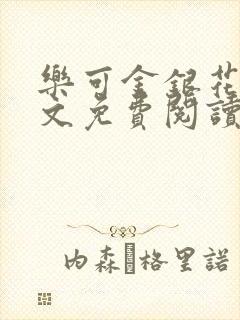 樂可金銀花
文免費閱讀
内森·格里諾